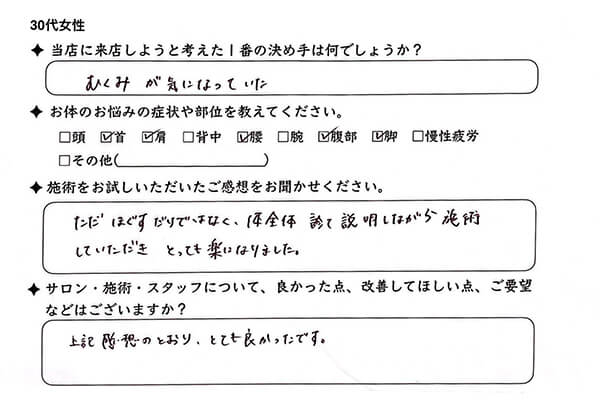 30代女性
✦ 当店に来店しようと考えた1番の決め手は何でしょうか?
むくみ が気になっていた
✦ お体のお悩みの症状や部位を教えてください。
□頭 ☑首 ☑肩 □背中 ☑腰 □腕 ☑腹部 ☑脚 □慢性疲労
□その他( )
✦ 施術をお試しいただいたご感想をお聞かせください。
ただ ほぐすだけではなく、体全体 診て 説明しながら 施術
していただき とっても楽になりました。
✦ サロン・施術・スタッフについて、良かった点、改善してほしい点、ご要望
などはございますか?
上記 感想のとおり、とても良かったです。